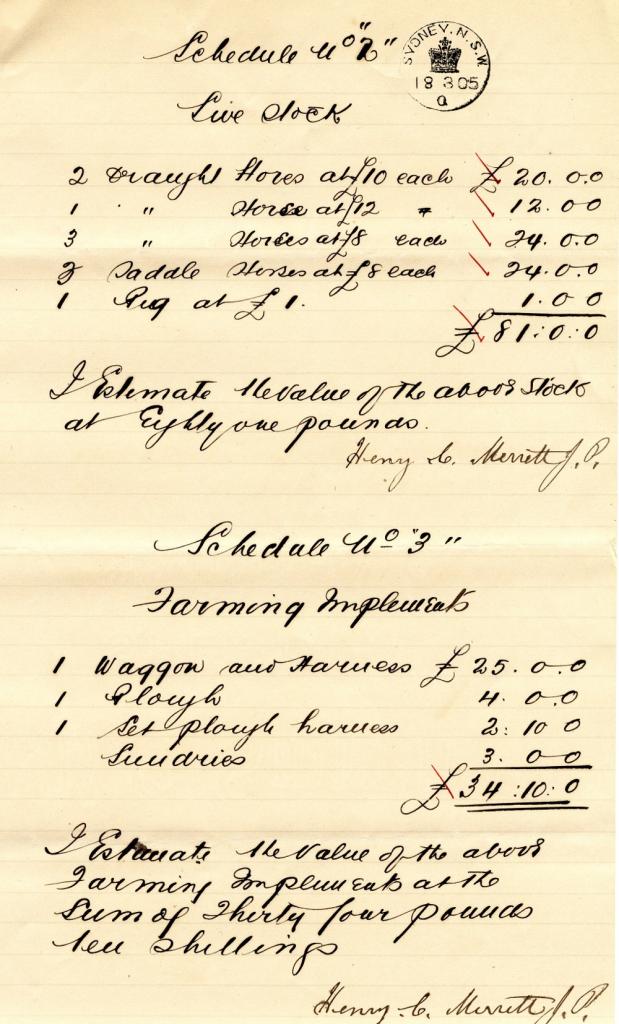 Schedule No "2"
SYDNEY. N. S. W.
18 3 05
Live Stock
2 Draught Hores at £10 each £ 20. 0. 0
1 " Horse at £12 " 12. 0 0
3 " Horses at £8 each 24. 0. 0
3 Saddle Horses at £8 each 24. 0. 0
1 Pig at £ 1. 1. 0 0
£ 81: 0: 0
I Estimate the value of the above Stock
at Eighty one pounds.
Henry C. Merrett J. P.
Schedule No "3"
Farming Implements
1 Waggon and Harness £ 25. 0. 0
1 Plough 4. 0. 0
1 Set plough harness 2: 10 0
Sundries 3. 0 0
£ 34: 10: 0
I Estimate the Value of the above
Farming Implements at the
Sum of Thirty four pounds
ten shillings
Henry C. Merrett J. P.